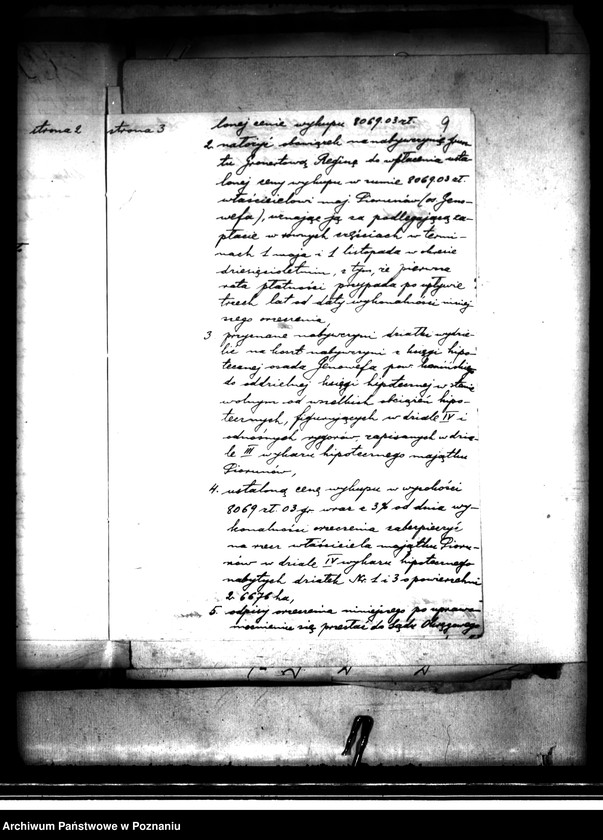 strona 2
strona 3
9
lonej cenie wykupu 8069.03 zł.
2. nałożyć obowiązek na nabywczynię grun-
tu Reginę do wpłacenia usta-
lonej ceny wykupu w sumie 8069.03 zł.
właścicielowi maj. Piorunów (os. Geno-
wefa), uznając ją za podlegającą za-
płacie w równych częściach w termi-
nach 1 maja i 1 listopada w okresie
dziesięcioletnim, z tym, że pierwsza
rata płatności przypada po upływie
trzech lat od daty wykonalności niniej-
szego orzeczenia,
3. przyznane nabywczyni działki wydzie-
lić na koszt nabywczyni z księgi hipo-
tecznej osada Genowefa pow. konińskiego
do oddzielnej księgi hipotecznej w stanie
wolnym od wszelkich obciążeń hipo-
tecznych, figurujących w dziale IV i
odnośnych rygorów, zapisanych w dzia-
le III wykazu hipotecznego majątku
Piorunów,
4. ustaloną cenę wykupu w wysokości
8069 zł. 03 gr. wraz z 3% od dnia wy-
konalności orzeczenia zabezpieczyć
na rzecz właściciela majątku Pioru-
nów w dziale IV wykazu hipotecznego
nabytych działek Nr. 1 i 3 o powierzchni
2.6676 ha,
5. odpisy orzeczenia niniejszego po uprawo-
mocnieniu się przesłać do Sądu Okręgowego
Archiwum Państwowe w Poznaniu